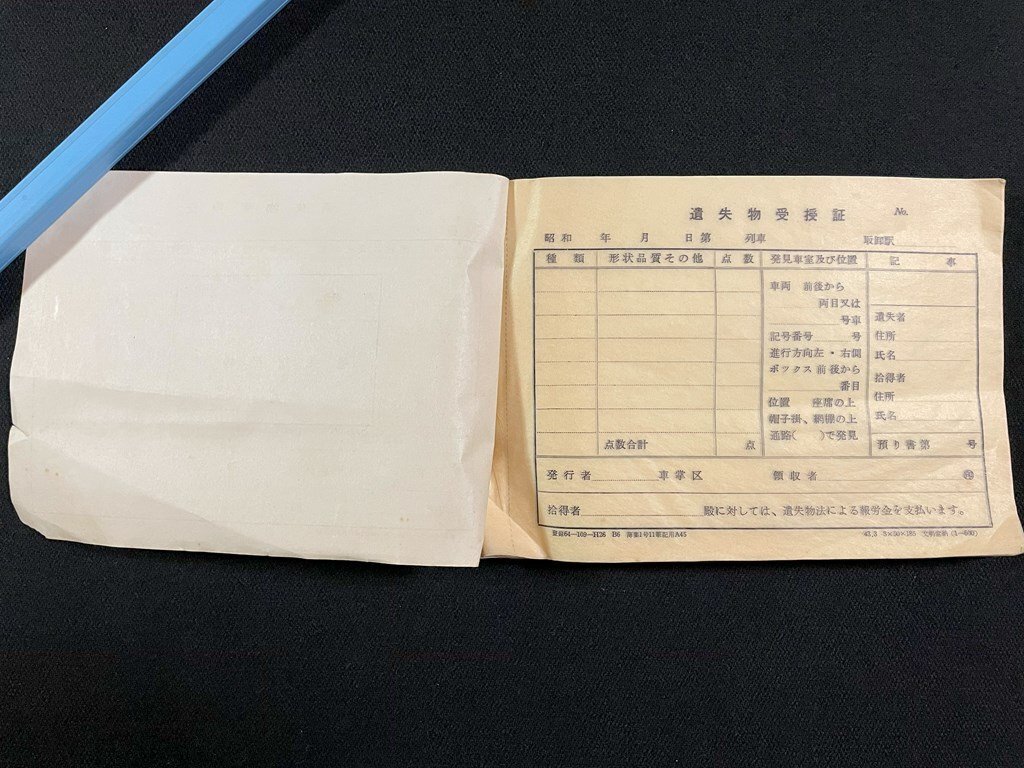 遺失物受授証 No.
昭和 年 月 日第 列車 取卸駅
種類 形状品質その他 点数 発見車室及び位置 記事
車両 前後から
両目又は
号車
記号番号 号
進行方向左・右側
ボックス前後から
番目
位置 座席の上
帽子掛、網棚の上
通路( )で発見
遺失者
住所
氏名
拾得者
住所
氏名
点数合計 点
預り書第 号
発行者 車掌区 領収者 ㊞
拾得者 殿に対しては、遺失物法による報労金を支払います。
登録64―109―H26 B6
43.3